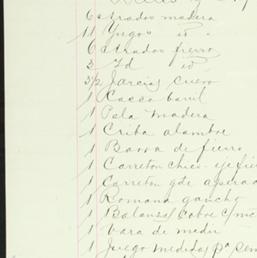 6 Arados madera
11 Yugos id
6 Arados fierro
3 Id id
3/2 Jarcias cuero
1 Cacso barril
1 Pala madera
1 Criba alambre
1 Barra de fierro
1 Carreton chico eje fi
1 Carreton gde aperad
1 Romana gancho
1 Balanza cobre c/
1 Vara de medir
1 Juego medidas pa